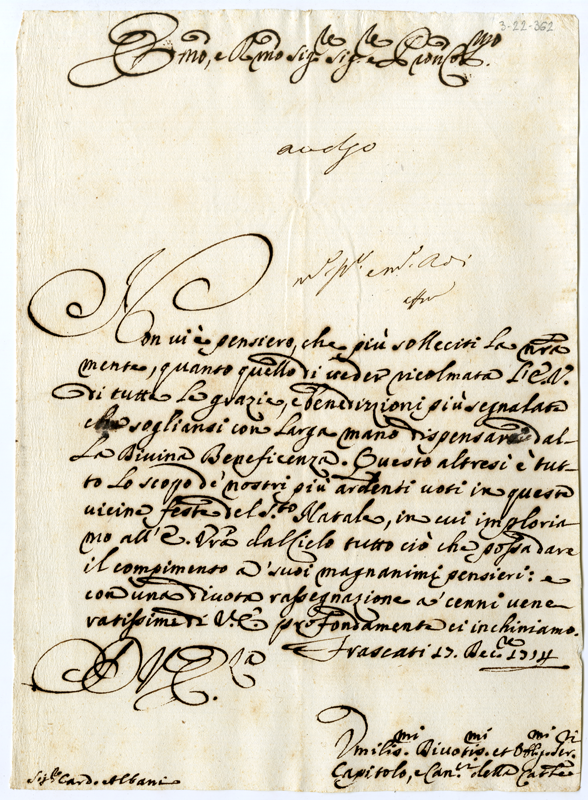 3-22-362
Emo, e Rmo Sig.re Sig.re e Pron Col.mo
Non vi è pensiero, che più solleciti la nra
mente, quanto quello di veder ricolmata L'E.V.
di tutte le grazie, e benedizzioni più segnalate
che sogliansi con larga mano dispensare dal-
la Divina Beneficenza. Questo altresì è tut-
to lo scopo de' nostri più ardenti voti in queste
vicine feste del S.to Natale, in cui imploria
mo all'E. Vra dal Cielo tutto ciò che possa dare
il compimento a' suoi magnanimi pensieri: e
con una divota rassegnazione a' cenni vene-
ratissimi di V.E. profondamente ci inchiniamo.
Frascati 17. Dec.re 1714
D V E.za
Umilis.mi Divotis.mi et Obbl.mi Ser.ri
Capitolo, e Can.ci della Catt.le
Sig.r Card. Albani